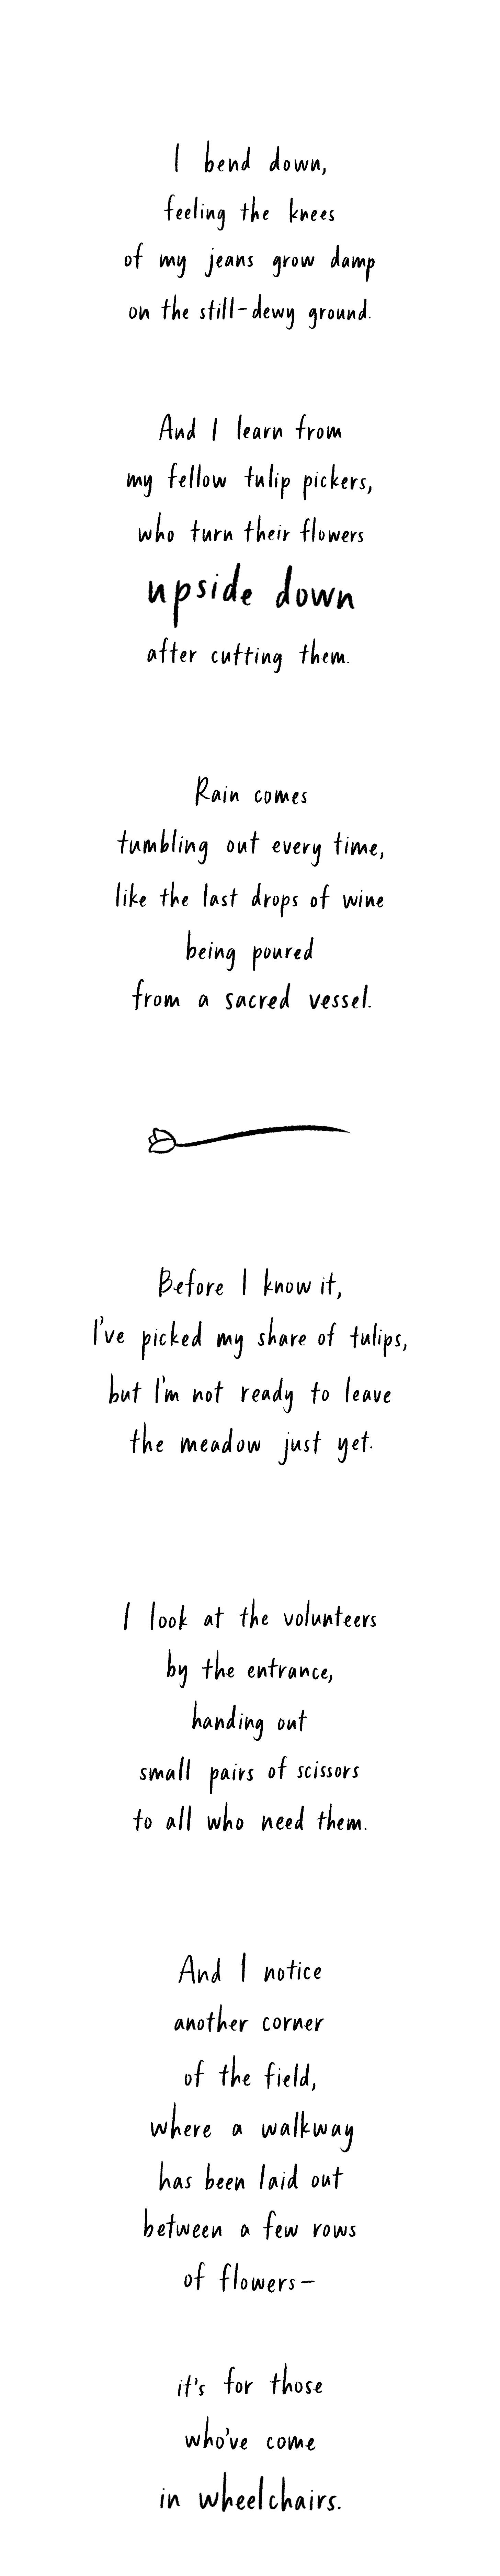 I bend down,
feeling the knees
of my jeans grow damp
on the still-dewy ground.
And I learn from
my fellow tulip pickers,
who turn their flowers
upside down
after cutting them.
Rain comes
tumbling out every time,
like the last drops of wine
being poured
from a sacred vessel.
Before I know it,
I've picked my share of tulips,
but I'm not ready to leave
the meadow just yet.
I look at the volunteers
by the entrance,
handing out
small pairs of scissors
to all who need them.
And I notice
another corner
of the field,
where a walkway
has been laid out
between a few rows
of flowers—
it's for those
who've come
in wheelchairs.